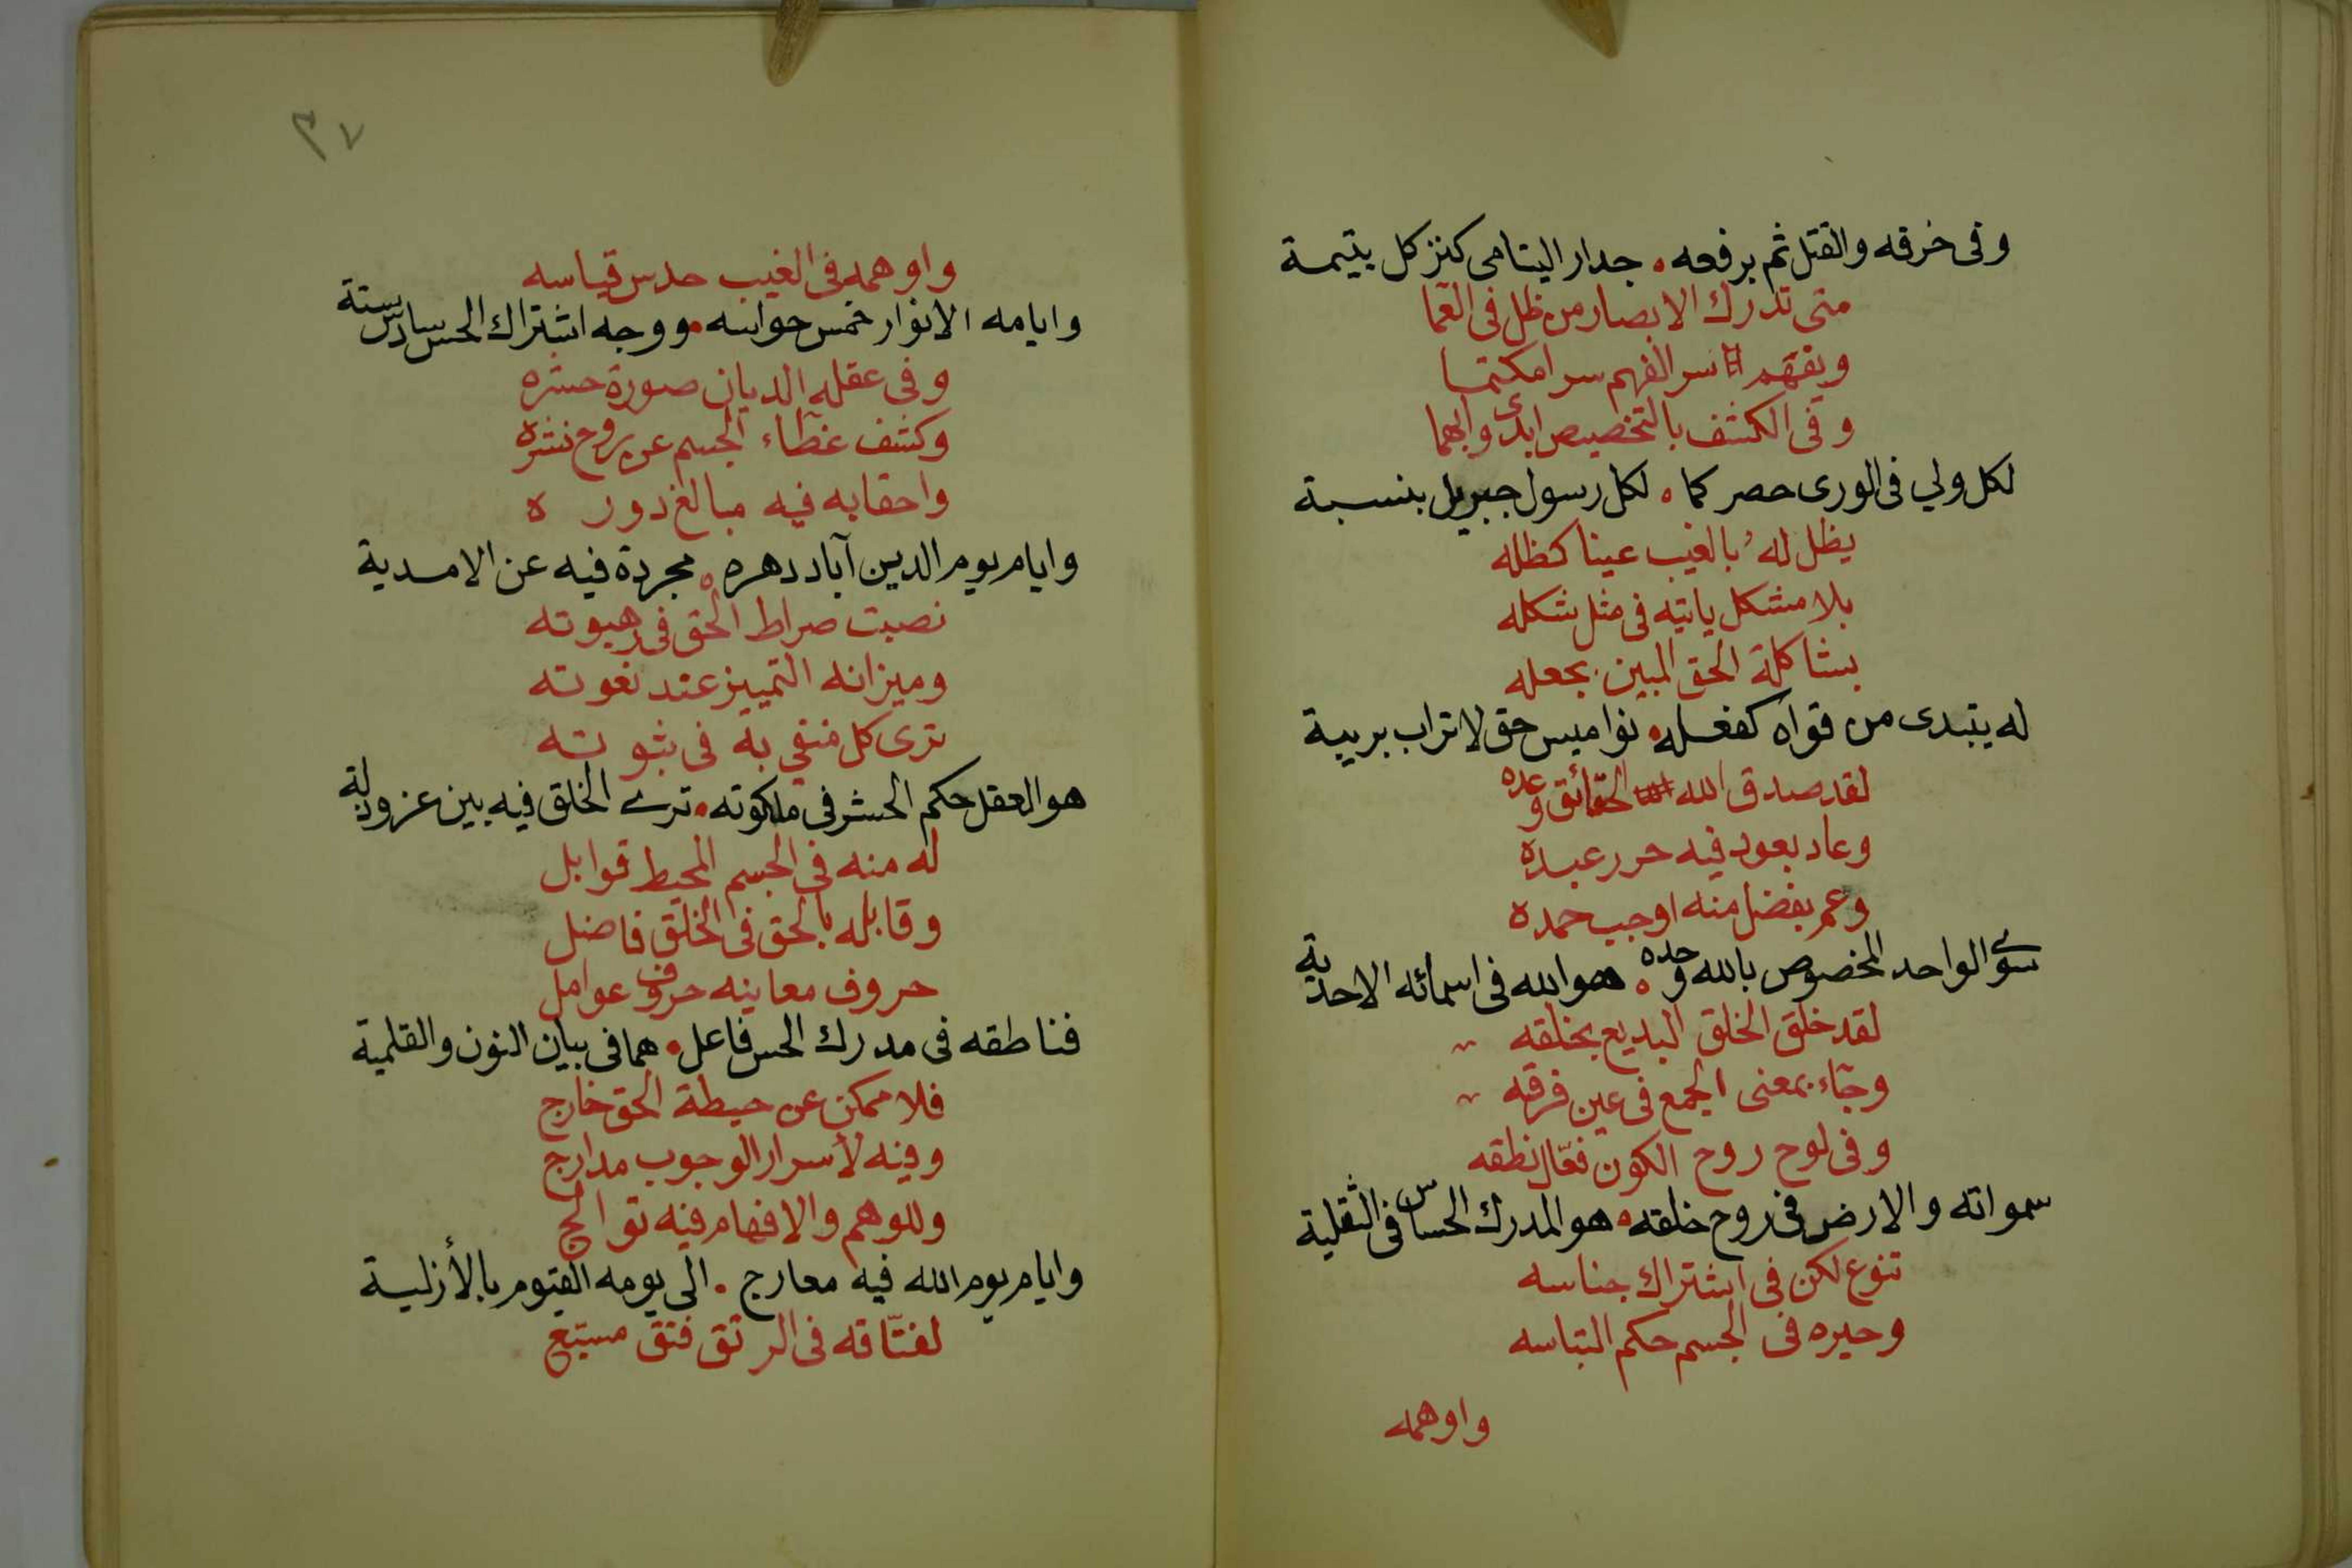 وفى خرقه والقتل ثم برفعه • جدار اليتامى كنز كل يتيمة
متى تدرك الابصار من ظل فى العما
ويفهم سر الفهم سرا مكتما
وفى الكشف بالتخصيص ابدى وابهما
لكل ولي فى الورى حصر كما • لكل رسول جبريل بنسبة
يظل له بالغيب عينا كظله
بلا مشكل ياتيه فى مثل شكله
بشاكلة الحق المبين بجعله
له يتبدى من قواه كفعله • نواميس حق لا تراب بريبة
لقد صدق الله الحقائق وعده
وعاد يعود فيه حرر عبده
وعم بفضل منه اوجب حمده
سوى الواحد المخصوص بالله وحده • هو الله فى اسمائه الاحدية
لقد خلق الخلق البديع بخلقه
وجاء بمعنى الجمع فى عين فرقه
وفى لوح روح الكون فعّال نطقه
سمواته والارض فى روح خلقه • هو المدرك الحساس فى الثقلية
تنوع لكن فى اشتراك جناسه
وحيره فى الجسم حكم التباسه
واوهمه
٣٧
واوهمه فى الغيب حدس قياسه
وايامه الانوار خمس حواسه • ووجه اشتراك الحس سادس ستة
وفى عقله الديان صورة حشره
وكشف غطاء الجسم عن روح نشره
واحقابه فيه مبالغ دوره
وايام يوم الدين آباد دهره • مجردة فيه عن الامدية
نصبت صراط الحق فى رهبوته
وميزانه التمييز عند نعوته
ترى كل منفي به فى ثبوته
هو العقل حكم الحشر فى ملكوته • ترى الخلق فيه بين عز وذلة
له منه فى الجسم المحيط قوابل
وقابله بالحق فى الخلق فاضل
حروف معانيه حروف عوامل
فناطقه فى مدرك الحس فاعل • هما فى بيان النون والقلمية
فلا ممكن عن حيطة الحق خارج
وفيه لأسرار الوجوب مدارج
وللوهم والافهام فيه توالج
وايام يوم الله فيه معارج • الى يومه القيوم بالأزلية
لفتّاقه فى الرتق فتق